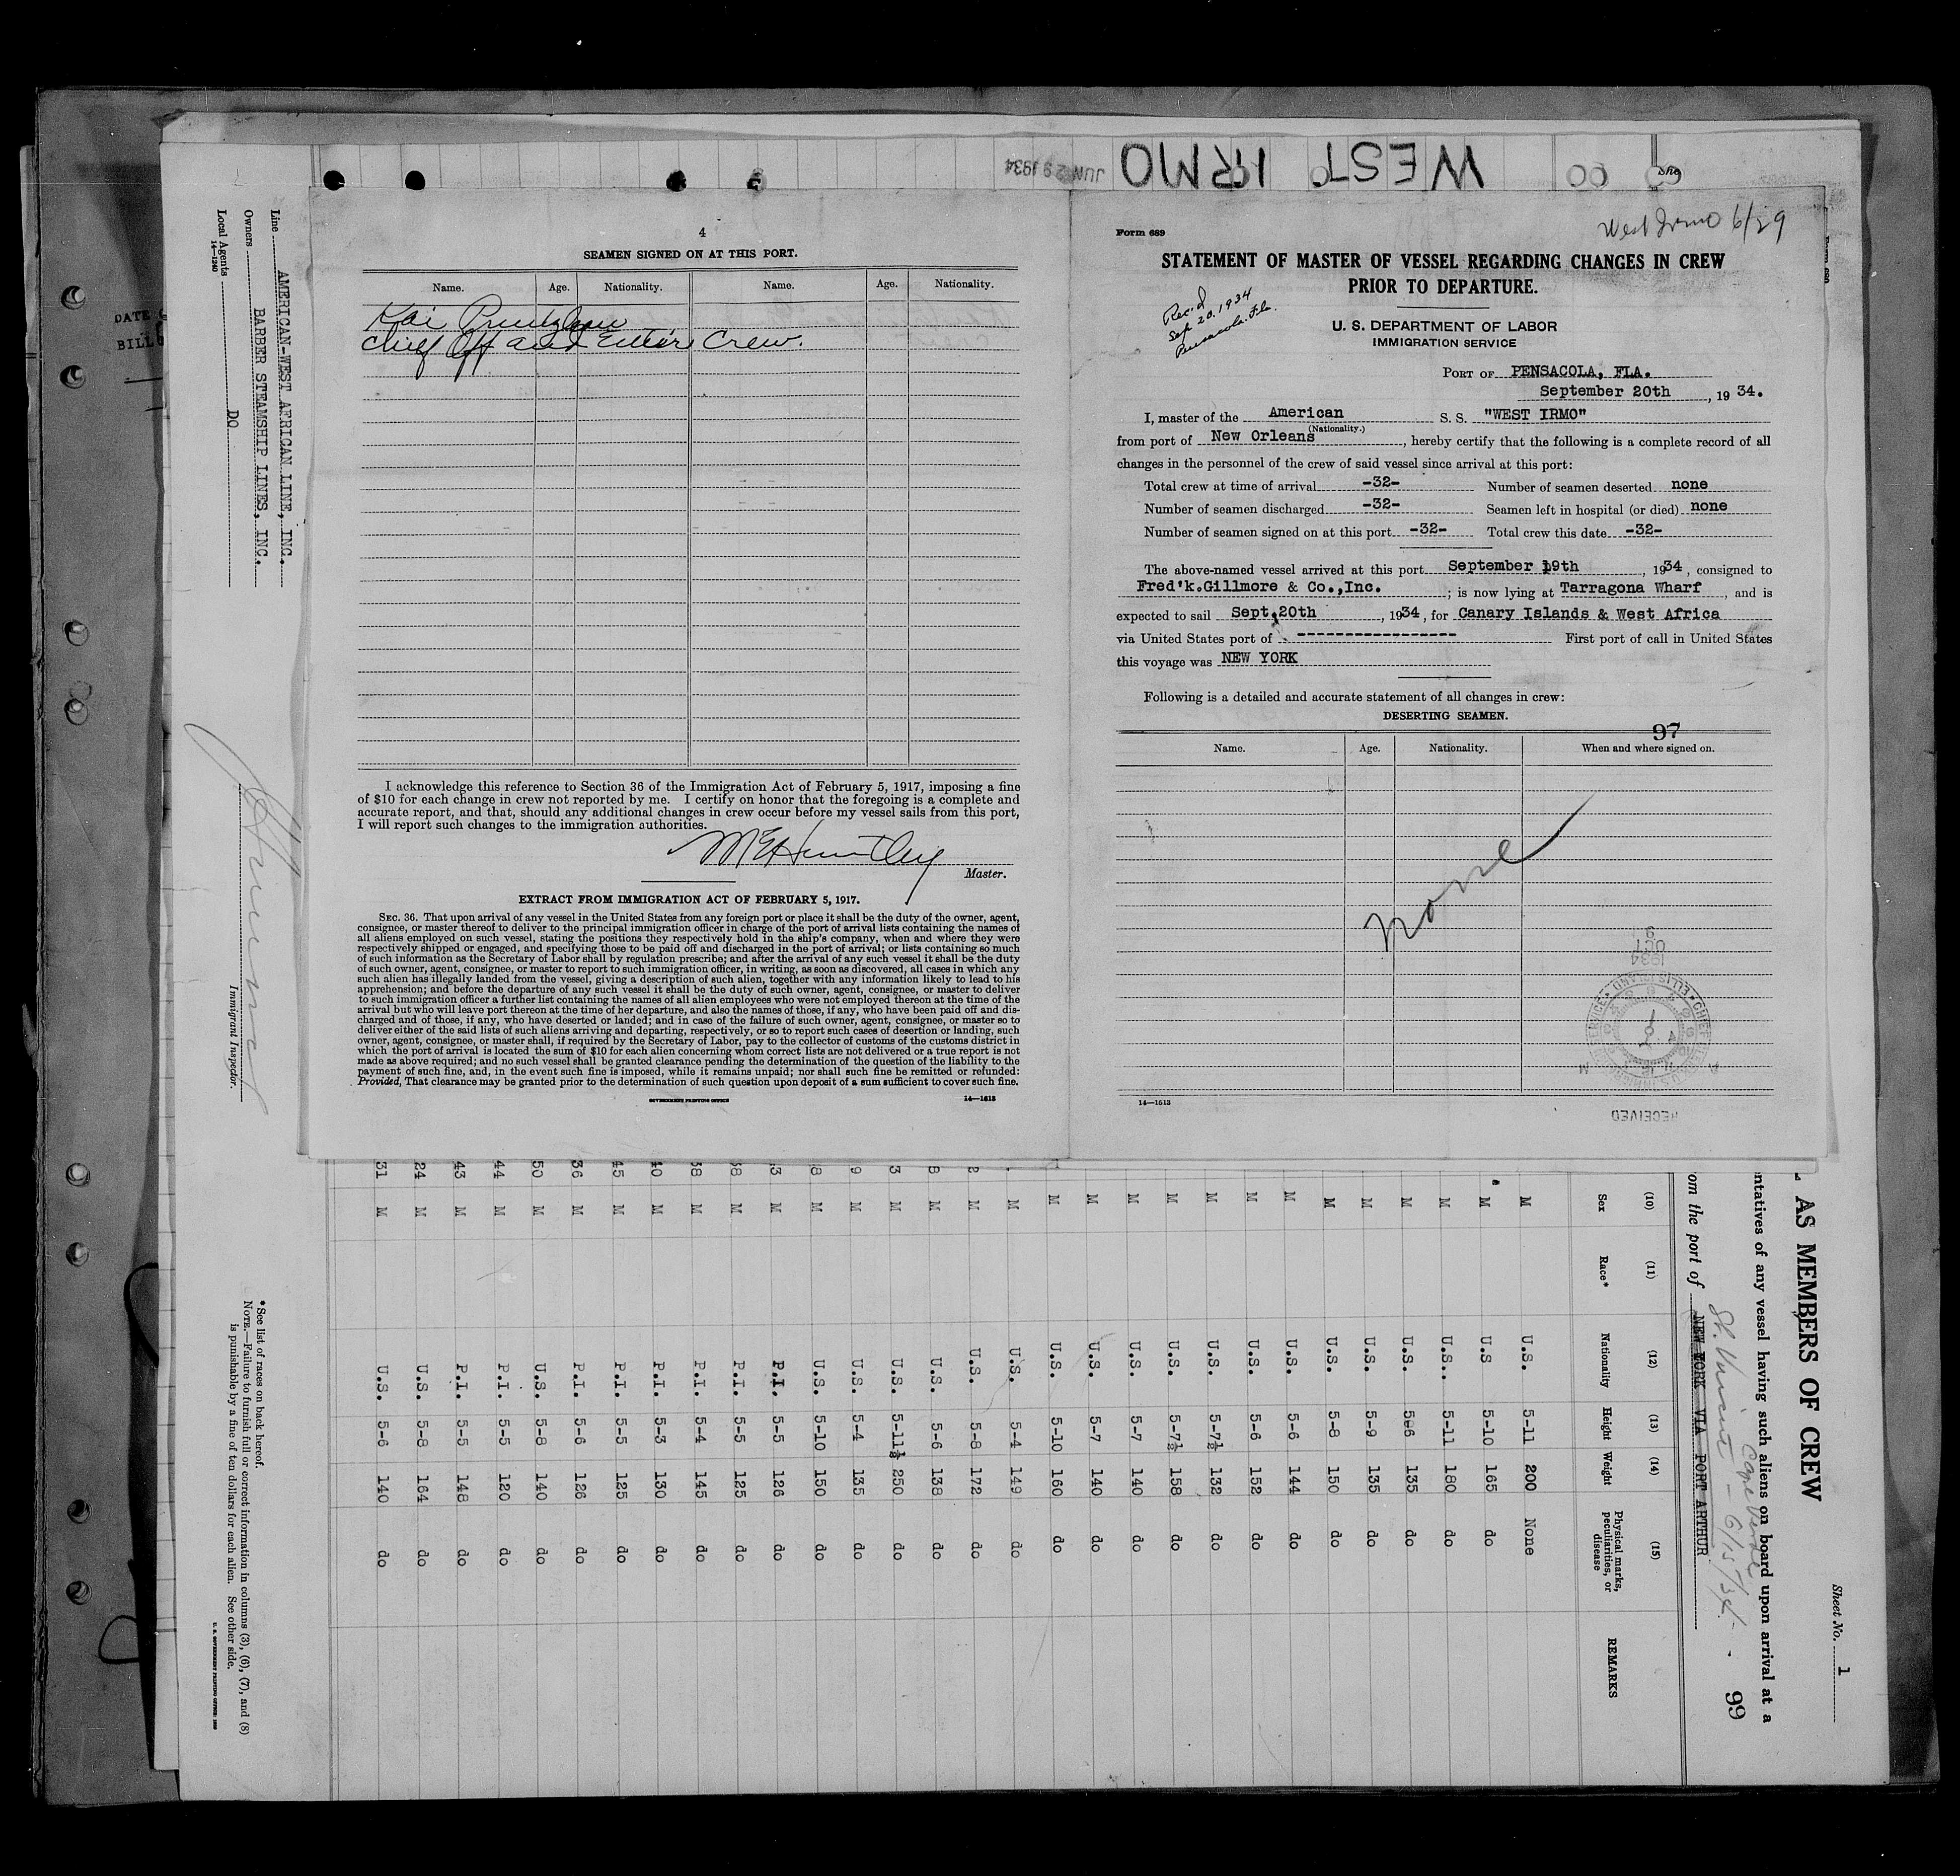 WEST IRMO
JUN 29 1934
4
SEAMEN SIGNED ON AT THIS PORT.
Name. Age. Nationality. Name. Age. Nationality.
Kai
Chief Off and Entire Crew.
I acknowledge this reference to Section 36 of the Immigration Act of February 5, 1917, imposing a fine
of $10 for each change in crew not reported by me. I certify on honor that the foregoing is a complete and
accurate report, and that, should any additional changes in crew occur before my vessel sails from this port,
I will report such changes to the immigration authorities.
Master.
EXTRACT FROM IMMIGRATION ACT OF FEBRUARY 5, 1917.
SEC. 36. That upon arrival of any vessel in the United States from any foreign port or place it shall be the duty of the owner, agent,
consignee, or master thereof to deliver to the principal immigration officer in charge of the port of arrival lists containing the names of
all aliens employed on such vessel, stating the positions they respectively hold in the ship's company, when and where they were
respectively shipped or engaged, and specifying those to be paid off and discharged in the port of arrival; or lists containing so much
of such information as the Secretary of Labor shall by regulation prescribe; and after the arrival of any such vessel it shall be the duty
of such owner, agent, consignee, or master to report to such immigration officer, in writing, as soon as discovered, all cases in which any
such alien has illegally landed from the vessel, giving a description of such alien, together with any information likely to lead to his
apprehension; and before the departure of any such vessel it shall be the duty of such owner, agent, consignee, or master to deliver
to such immigration officer a further list containing the names of all alien employees who were not employed thereon at the time of the
arrival but who will leave port thereon at the time of her departure, and also the names of those, if any, who have been paid off and dis-
charged and of those, if any, who have deserted or landed; and in case of the failure of such owner, agent, consignee, or master so to
deliver either of the said lists of such aliens arriving and departing, respectively, or so to report such cases of desertion or landing, such
owner, agent, consignee, or master shall, if required by the Secretary of Labor, pay to the collector of customs of the customs district in
which the port of arrival is located the sum of $10 for each alien concerning whom correct lists are not delivered or a true report is not
made as above required; and no such vessel shall be granted clearance pending the determination of the question of the liability to the
payment of such fine, and, in the event such fine is imposed, while it remains unpaid; nor shall such fine be remitted or refunded:
Provided, That clearance may be granted prior to the determination of such question upon deposit of a sum sufficient to cover such fine.
GOVERNMENT PRINTING OFFICE 14—1613
West Irmo 6/29
Form 689
STATEMENT OF MASTER OF VESSEL REGARDING CHANGES IN CREW
PRIOR TO DEPARTURE.
Rec'd
Sep 20. 1934
Pensacola. Fla.
U. S. DEPARTMENT OF LABOR
IMMIGRATION SERVICE
PORT OF PENSACOLA, FLA.
September 20th, 1934.
I, master of the American S. S. "WEST IRMO"
(Nationality.)
from port of New Orleans, hereby certify that the following is a complete record of all
changes in the personnel of the crew of said vessel since arrival at this port:
Total crew at time of arrival -32- Number of seamen deserted none
Number of seamen discharged -32- Seamen left in hospital (or died) none
Number of seamen signed on at this port -32- Total crew this date -32-
The above-named vessel arrived at this port September 19th, 1934, consigned to
Fred'k.Gillmore & Co.,Inc.; is now lying at Tarragona Wharf, and is
expected to sail Sept.20th, 1934, for Canary Islands & West Africa
via United States port of ----------------- First port of call in United States
this voyage was NEW YORK
Following is a detailed and accurate statement of all changes in crew:
DESERTING SEAMEN.
97
Name. Age. Nationality. When and where signed on.
none
1934
OCT
9
RECEIVED
14—1613
Line AMERICAN-WEST AFRICAN LINE, INC.
Owners BARBER STEAMSHIP LINES, INC.
Local Agents DO
14—1240
Immigrant Inspector.
DATE
BILL
*See list of races on back hereof.
NOTE.—Failure to furnish full or correct information in columns (3), (6), (7), and (8)
is punishable by a fine of ten dollars for each alien. See other side.
Sheet No. 1
AS MEMBERS OF CREW
ntatives of any vessel having such aliens on board upon arrival at a
om the port of NEW YORK VIA PORT ARTHUR
St. Vincent - 6/15/34.
Cape Verde
99
(10) (11) (12) (13) (14) (15)
Sex Race* Nationality Height Weight Physical marks, peculiarities, or disease REMARKS
M U.S. 5-11 200 None
M U.S 5-10 165 do
M U.S. 5-11 180 do
M U.S. 5-6 135 do
M U.S. 5-9 135 do
M U.S. 5-8 150 do
M U.S. 5-6 144 do
M U.S. 5-6 152 do
M U.S. 5-7½ 132 do
M U.S. 5-7½ 158 do
M U.S. 5-7 140 do
M U.S. 5-7 140 do
M U.S. 5-10 160 do
M U.S. 5-4 149 do
M U.S. 5-8 172 do
M U.S. 5-6 138 do
3 M U.S. 5-11½ 250 do
9 M U.S. 5-4 135 do
8 M U.S. 5-10 150 do
3 M P.I. 5-5 126 do
38 M P.I. 5-5 125 do
38 M P.I. 5-4 145 do
40 M P.I. 5-3 130 do
45 M P.I. 5-5 125 do
36 M P.I. 5-6 126 do
50 M U.S. 5-8 140 do
44 M P.I. 5-5 120 do
43 M P.I. 5-5 148 do
24 M U.S. 5-8 164 do
31 M U.S. 5-6 140 do